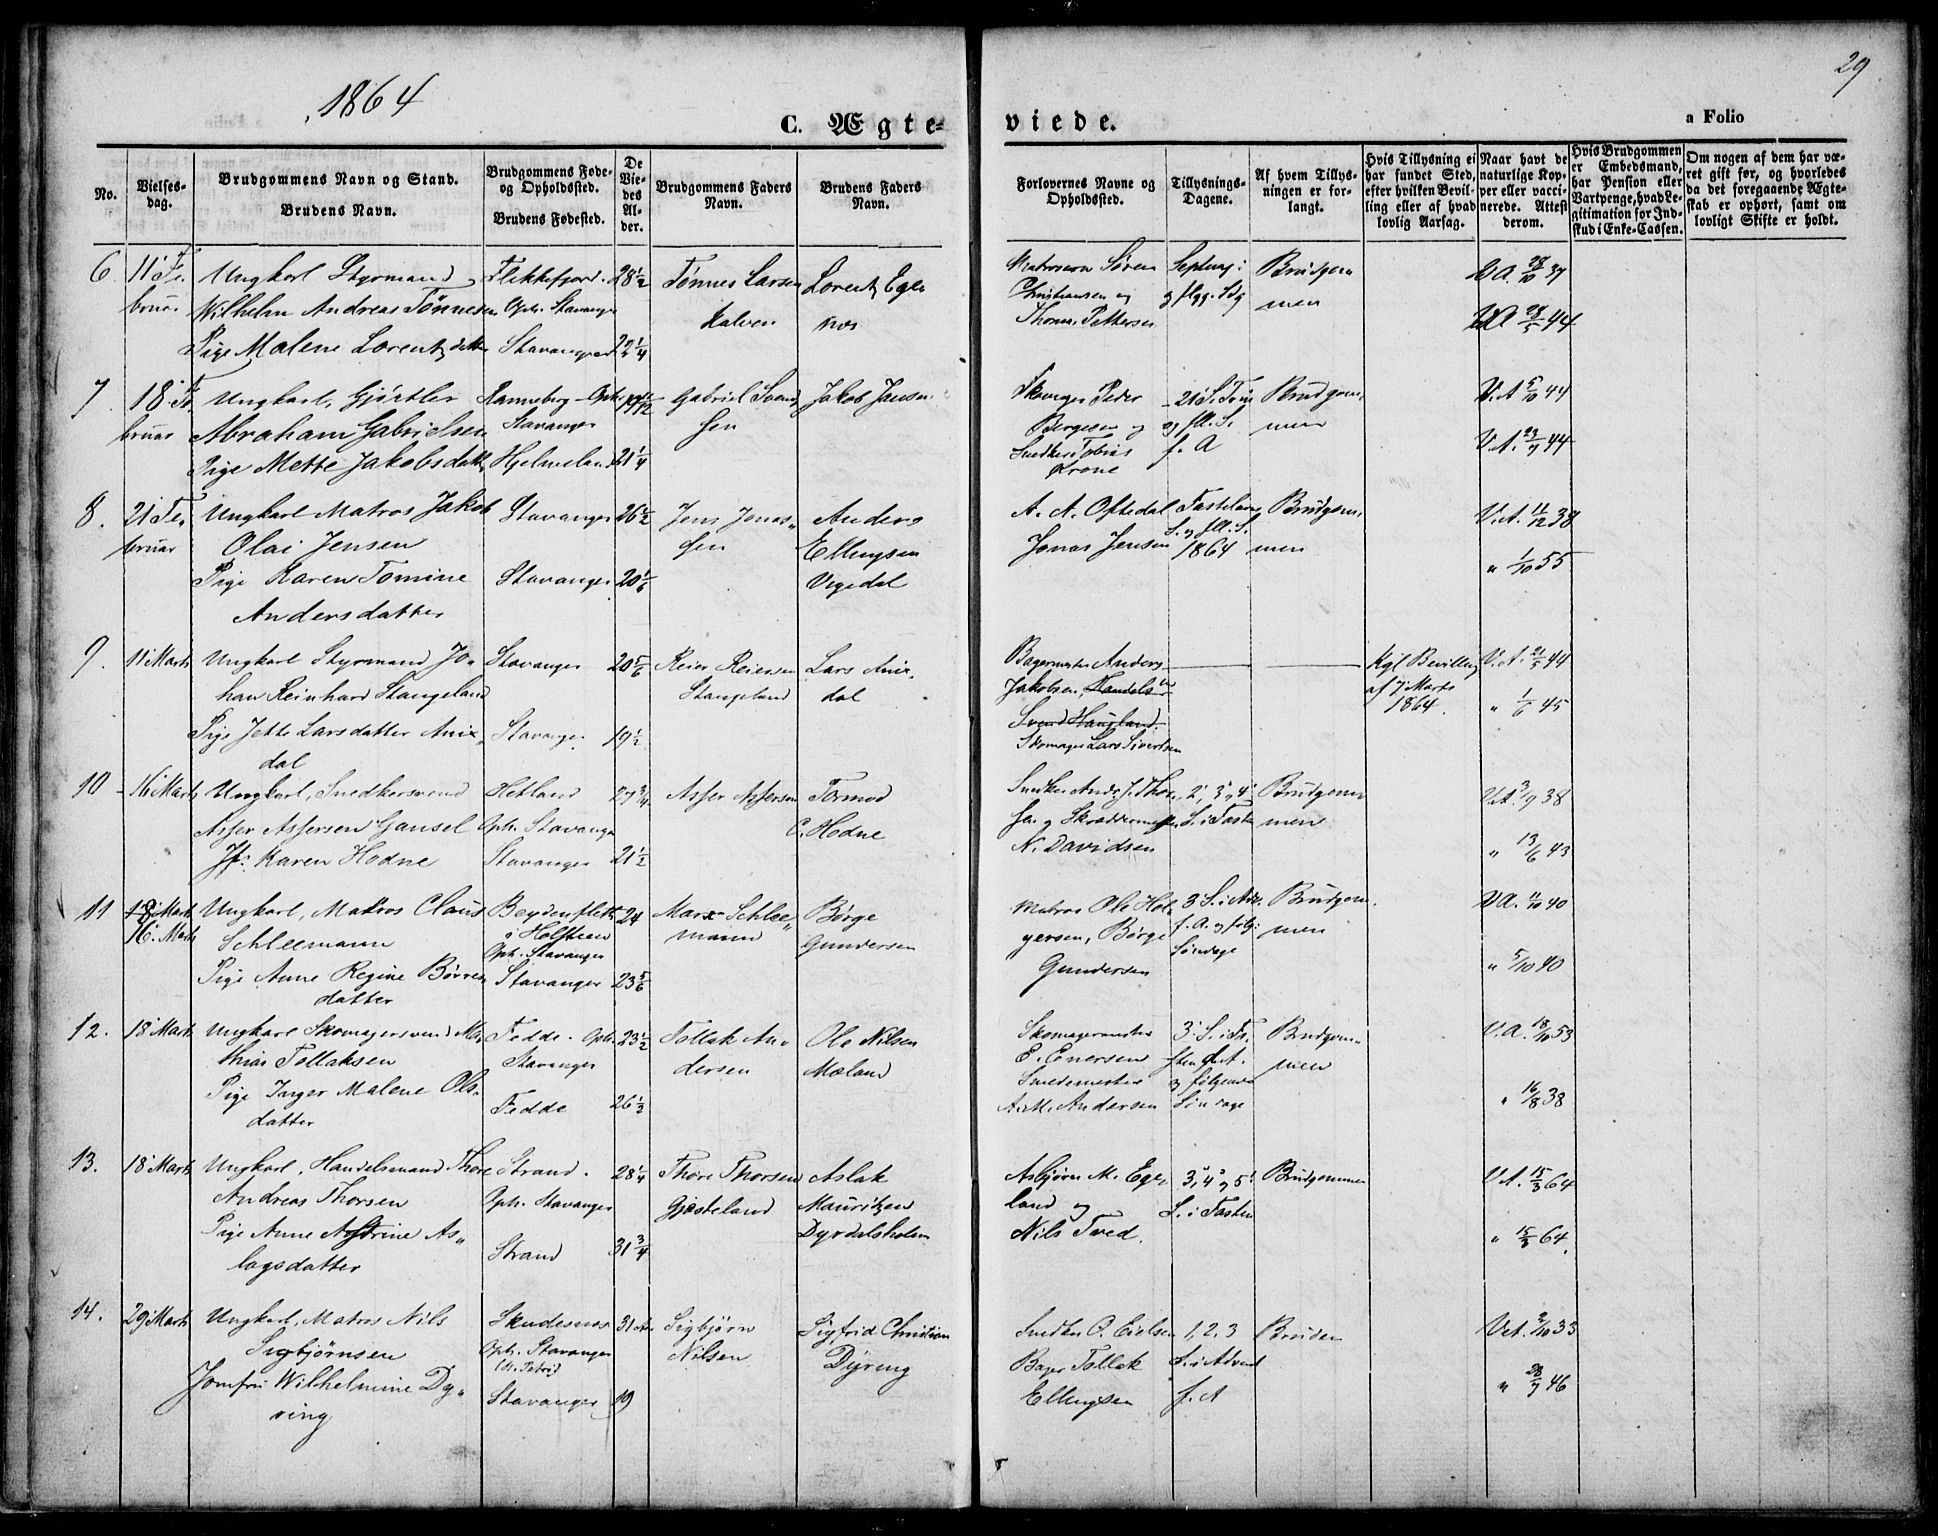 1864
29
C. Ægte-
viede.
a Folio
No.
Vielses-
dag.
Brudgommens Navn og Stand.
Brudens Navn.
Brudgommens Føde-
og Opholdssted.
Brudens Fødested.
De
Vie-
des
Al-
der.
Brudgommens Faders
Navn.
Brudens Faders
Navn.
Forlovernes Navne og
Opholdssted.
Tillysnings-
Dagene.
Af hvem Tillys-
ningen er for-
langt.
Hvis Tillysning ei
har fundet Sted,
efter hvilken Bevil-
ling eller af hvad
lovlig Aarsag.
Naar havt de
naturlige Kop-
per eller vacci-
nerede. Attest
derom.
Hvis Brudgommen
er Embedsmand,
har Pension eller
Vartpenge, hvad Le-
gitimation for Ind-
skud i Enke-Cassen.
Om nogen af dem har væ-
ret gift før, og hvorledes
da det foregaaende Ægte-
skab er ophørt, samt om
lovligt Skifte er holdt.
6 11' Fe-
bruar
Ungkarl Styrmand
Wilhelm Andreas Tønnesen
Pige Malene Lorentzdatter
Flekkefjord
Oph. Stavanger
Stavanger
28 1/2
22 1/4
Tønnes Larsen
Kalven
Lorentz Ege-
næs
Matroserne Søren
Christiansen og
Thomas Pettersen
Septuag:
og flgg. Sdg
Brudgom
men
V.A. 28/10 37
V.A. 28/5 44
7 18' Fe
bruar
Ungkarl, Gjørtler
Abraham Gabrielsen
Pige Mette Jakobsdatter
Ranneberg - Oph.
Stavanger
Hjelmeland
21 1/4
Gabriel Svend
sen
Jakob Jansen
Skomager Peder
Bergesen og
Snedker Tobias
Krone
og fll. S.
f. A
Brudgom
men
V.A. 5/10 44
V.A. 23/7 44
8. 21' Fe,
bruar
Ungkarl Matros Jakob
Olai Jensen
Pige Karen Tomine
Andersdatter
Stavanger
Stavanger
26 1/2
20 1/6
Jens Jonas-
sen
Anders
Ellingsen
Vegedal
A. A. Oftedal
Jonas Jensen
Fastelavn
S. og fll. S.
1864
Brudgom
men
V.A. 11/12 38
" 1/10 55
9. 11' Marts
Ungkarl Styrmand Jo-
han Reinhard Stangeland
Pige Jette Larsdatter Anix-
dal
Stavanger
Stavanger
20 5/6
19 1/2
Reier Reiersen
Stangeland
Lars Anix-
dal
Bagermester Anders
Jakobsen, Handelsm
Svend Haugland
Skomager Lars Sivertsen
Kgl Bevilling
af 7' Marts
1864.
V.A. 21/5 44
" 1/6 45
10 16' Marts
Ungkarl, Snedkersvend
Asser Assersen Gausel
Jfr: Karen Hodne
Hetland
Oph. Stavanger
Stavanger
27 3/4
21 1/2
Asser Assersen
Tormod
C. Hodne
Snedker And. J. Thor
sen og Skræddermester
N. Davidsen
2', 3' og 4'
S. i Fasten
Brudgom
men
V.A. 3/7 38
" 13/6 43
11 18' Marts
16' Marts
Ungkarl, Matros Claus
Schleemann
Pige Anne Regine Børre-
datter
Beydenfleth
i Holsteen
Oph. Stavanger
Stavanger
24
23 5/6
Marx Schlee-
mann
Børge
Gundersen
Matros Ole Hol-
gersen, Børge
Gundersen
3' S. i Adv.
f. A. og følg:
Søndage
Brudgom
men
V.A. 11/10 40
" 5/10 40
12. 18' Marts
Ungkarl Skomagersvend Ma-
thias Tollaksen
Pige Inger Malene Ols-
datter
Fedde. Oph.
Stavanger
Fedde
23 1/2
26 1/2
Tollak An-
dersen
Ole Nilsen
Mæland
Skomagermester
E. Enersen
Smedemester
A. M. Andersen
3' S. i Fa-
sten d. A.
og følgende
Søndage
Brudgom-
men
V.A. 18/10 53
" 16/8 38
13. 18' Marts
Ungkarl, Handelsmand Thore
Andreas Thorsen
Pige Anne Astrine As-
lagsdatter
Strand.
Oph. Stavanger
Strand
28 1/4
31 3/4
Thore Thorsen
Gjesteland
Aslak
Mauritzen
Dyrdalsholm
Asbjørn M. Ege-
land og
Nils Tved.
3', 4' og 5'
S. i Fasten
Brudgommen
V.A. 15/3 64
" 15/3 64.
14. 29' Marts
Ungkarl, Matros Nils
Sigbjørnsen
Jomfru Wilhelmine Dy-
ring
Skudesnæs
Oph. Stavanger
(St. Petri)
Stavanger
31 Aar
19
Sigbjørn
Nilsen
Sigfrid Christian
Dyring
Snedker O. Eielsen
Bager Tollak
Ellingsen
1, 2. 3
S. i Advent
f. A
Bruden
V.A. 2/10 33
" 28/7 46